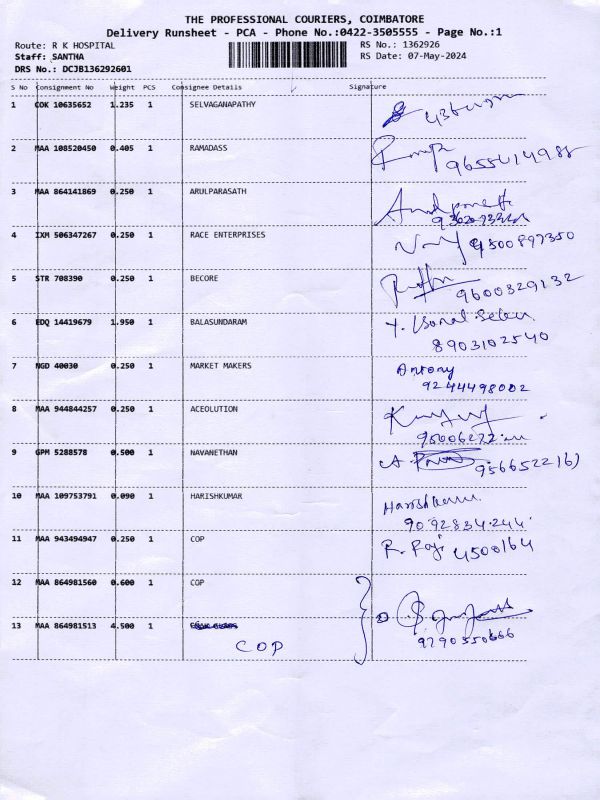 THE PROFESSIONAL COURIERS, COIMBATORE
Delivery Runsheet - PCA - Phone No.:0422-3505555 - Page No.:1
Route: R K HOSPITAL RS No.: 1362926
Staff: SANTHA RS Date: 07-May-2024
DRS No.: DCJB136292601
S No Consignment No Weight PCS Consignee Details Signature
1 COK 10635652 1.235 1 SELVAGANAPATHY
2 MAA 108520450 0.405 1 RAMADASS
9655414988
3 MAA 864141869 0.250 1 ARULPARASATH
4 IXM 506347267 0.250 1 RACE ENTERPRISES
9500897350
5 STR 708390 0.250 1 BECORE
9600329132
6 EDQ 14419679 1.950 1 BALASUNDARAM
8903102540
7 NGD 40030 0.250 1 MARKET MAKERS Antony
9244498002
8 MAA 944844257 0.250 1 ACEOLUTION
9 GPM 5288578 0.500 1 NAVANETHAN
9566522161
10 MAA 109753791 0.090 1 HARISHKUMAR Harishkumar
9092834244
11 MAA 943494947 0.250 1 COP R. Raji 4500164
12 MAA 864981560 0.600 1 COP
13 MAA 864981513 4.500 1
COP 9290350666